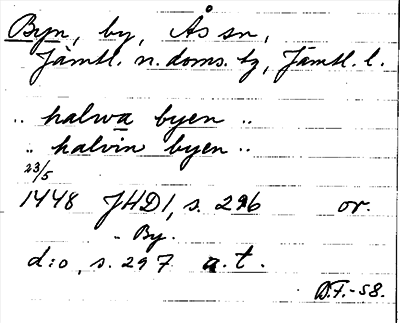 Byn, by, Ås sn,
Jämtl. n. doms. tg, Jämtl. l.
.. halwa byen ..
.. halvin byen ..
23/5
1448 JHD1, s. 296 or.
By.
d:o, s. 297 a.t.
D.F.-58.